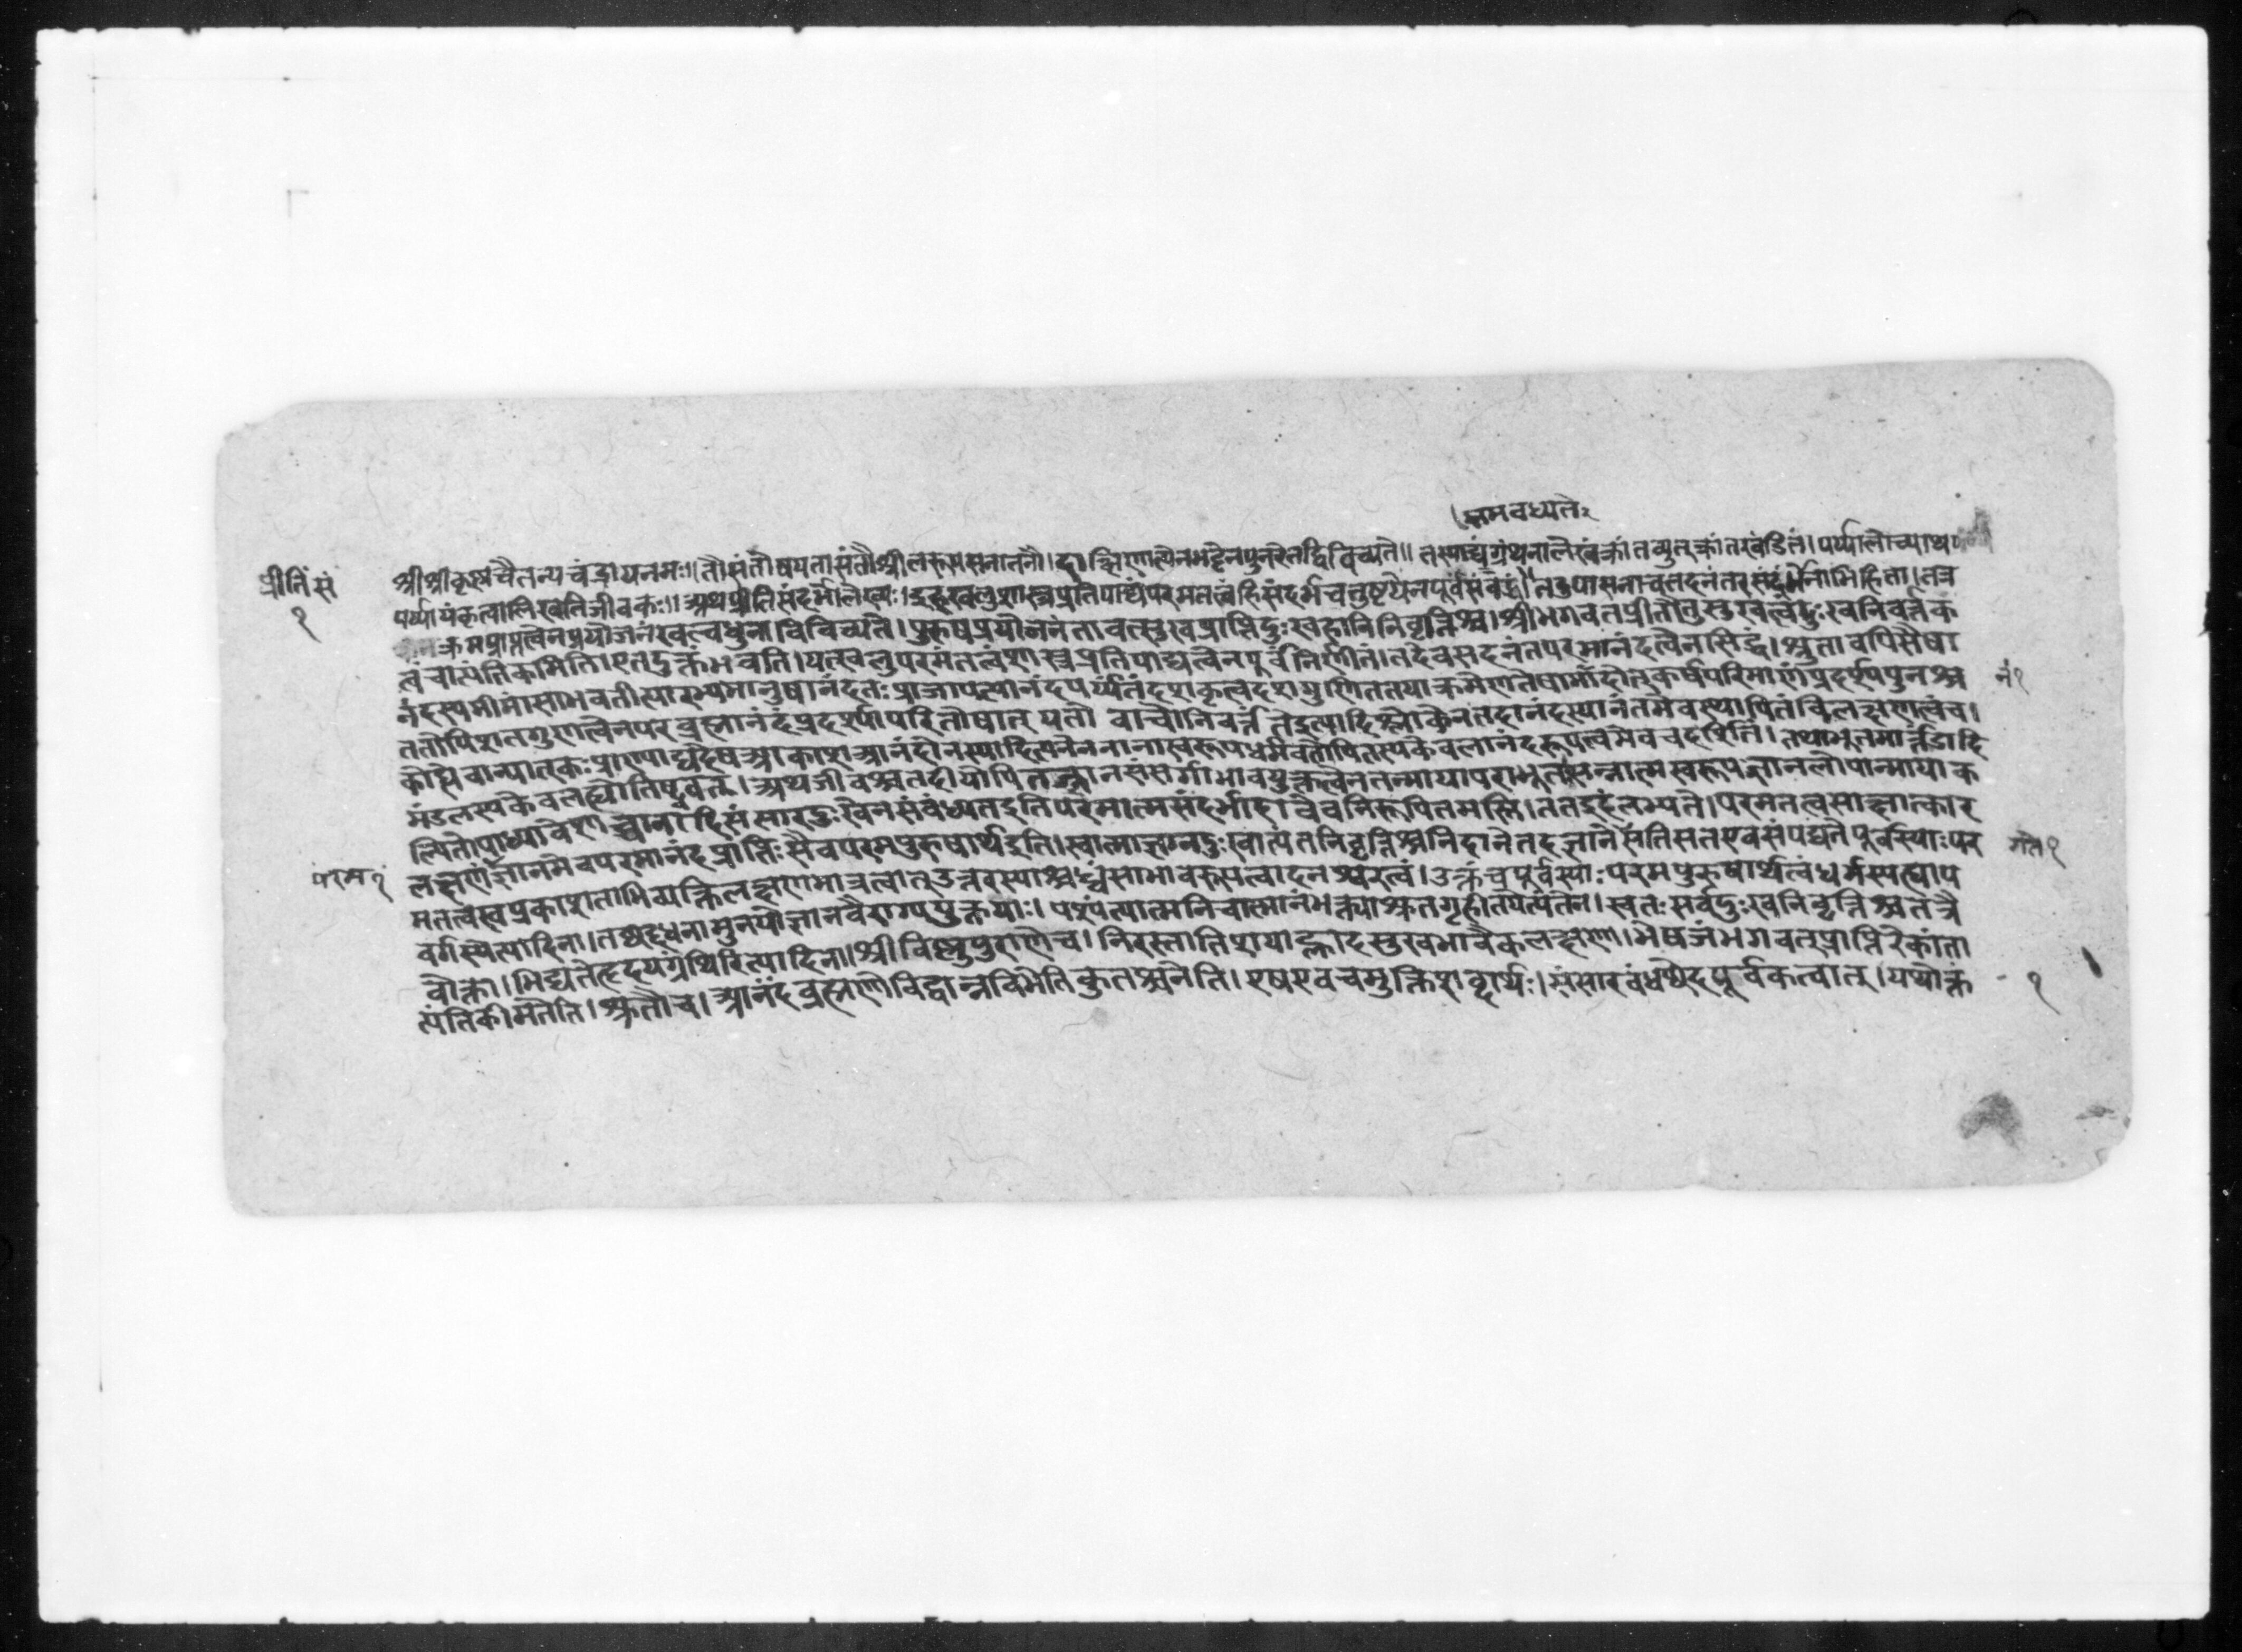 ।समवध्यते२
प्रीतिसं
१
श्रीश्रीकृष्णचैतन्यचंद्रायनमः॥तौसंतोषयतासंतौश्रीलरूपसनातनौ।दाक्षिणात्येनभट्टेनपुनरेतद्विविच्यते॥तस्याद्यंग्रंथनालेखंक्रांतव्युत्क्रांतखंडितं।पर्य्यालोच्याथ
पर्य्यायंकृत्वालिखतिजीवकः॥अथप्रीतिसंदर्भोलेख्यः।इहखलुशास्त्रप्रतिपाद्यंपरमतत्वंहिसंदर्भचतुष्टयेनपूर्वसंबद्धं।तदुपासनाचतदनंतरसंदर्भेनाभिहिता।तत्र
क्रमप्राप्तत्वेनप्रयोजनंखल्वधुनाविविच्यते।पुरुषप्रयोजनंतावत्सुखप्राप्तिदुःखहानिनिवृत्तिश्च।श्रीभगवतप्रीतौतुसुखत्वंदुःखनिवर्त्तक
त्वंचात्यंतिकमिति।एतदुक्तंभवति।यत्खलुपरमंतत्वंशास्त्रप्रतिपाद्यत्वेनपूर्वंनिर्णीतं।तदेवसदनंतपरमानंदत्वेनसिद्धं।श्रुतावपिसैषा
नंदस्यमीमांसाभवतीत्यारभ्यमानुषानंदतःप्राजापत्यानंदपर्य्यंतंदशकृत्वदशगुणिततयाक्रमेणतेषामानंदोत्कर्षपरिमाणंप्रदर्श्यपुनश्च
नं१
ततोपिशतगुणत्वेनपरब्रह्मानंदंप्रदर्श्यापरितोषात्यतोवाचोनिवर्त्तंतेइत्यादिश्लोकेनतदानंदस्यानंतमेवस्थापितंविलक्षणत्वंच।
कोह्येवान्यात्कःप्राण्याद्यदेषआकाशआनंदोनस्यादित्यनेननानास्वरूपधर्मवतोपितस्यकेवलानंदरूपत्वमेवचदर्शितं।तथाभूतमार्त्तंडादि
मंडलस्यकेवलज्योतिष्ट्ववत्।अथजीवश्चतदीयोपितज्ज्ञानसंसर्गाभावयुक्तत्वेनतन्मायापराभूतःसन्नात्मस्वरूपज्ञानलोपान्मायाक
ल्पितोपाध्यावेशाच्चानादिसंसारदुःखेनसंबंध्यतइतिपरमात्मसंदर्भादावेवनिरूपितमस्ति।ततइदंलभ्यते।परमतत्वसाक्षात्कार
लक्षणंज्ञानमेवपरमानंदप्राप्तिःसैवपरमपुरुषार्थइति।स्वात्माज्ञानदुःखात्यंतनिवृत्तिश्चनिदानेतदज्ञानेसतिसतएवसंपद्यतेपूर्वस्याःपर
परम१
गते१
मतत्वस्वप्रकाशताभिव्यक्तिलक्षणमात्रत्वात्उत्तरस्याश्चध्वंसाभावरूपत्वादनश्वरत्वं।उक्तंचपूर्वस्याःपरमपुरुषार्थत्वंधर्मस्यह्याप
वर्गस्येत्यादिना।तच्छ्रद्दधनामुनयोज्ञानवैराग्ययुक्तयाः।पश्यंत्यात्मनिचात्मानंभक्त्याश्रुतगृहीतयेत्यंतेन।स्वतःसर्वदुःखनिवृत्तिश्चतत्रै
वोक्ता।भिद्यतेहृदयग्रंथिरित्यादिना।श्रीविष्णुपुराणेच।निरस्तातिशयाह्लादसुखभावैकलक्षणा।भेषजंभगवत्प्राप्तिरेकांता
त्यंतिकीमतेति।श्रुतौच।आनंदंब्रह्मणोविद्वान्नबिभेतिकुतश्चनेति।एषएवचमुक्तिशब्दार्थः।संसारबंधछेदपूर्वकत्वात्।यथोक्तं
१